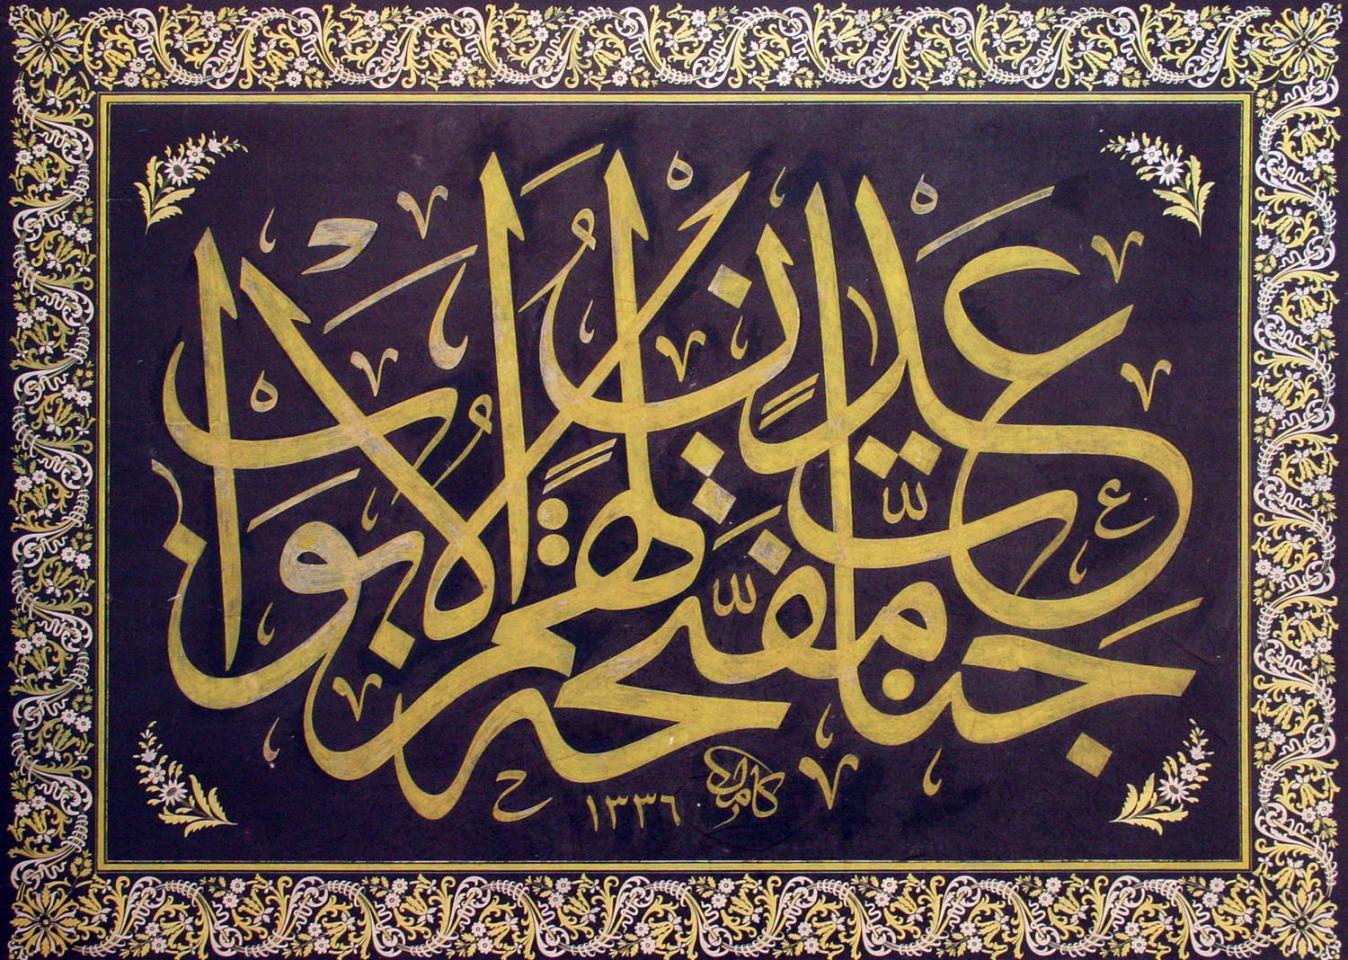 جنات عدن مفتحة لهم الابواب
كامل
١٣٣٦